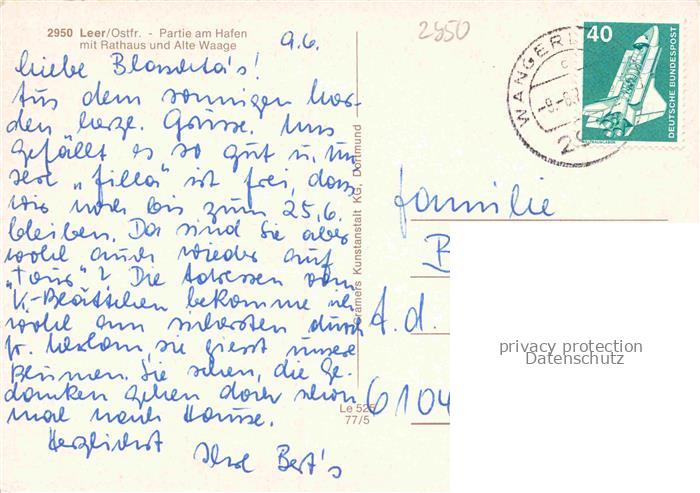 2950 Leer/Ostfr. - Partie am Hafen
mit Rathaus und Alte Waage
9.6.
2950
Liebe Blaschta's!
Aus dem sonnigen Nor-
den herzl. Grüsse. Uns
gefällt es so gut u. un-
sere „Filla" ist frei, dass
wir noch bis zum 25.6.
bleiben. Da sind Sie aber
wohl auch wieder auf
„Tour"? Die Adressen vom
K.-Blättchen bekomme ich
wohl am sichersten durch
Fr. sie giesst unsere
Blumen. Sie sehen, die Ge-
danken gehen doch schon
mal nach Hause.
Herzlichst
Ihre Bert's
Cramers Kunstanstalt KG, Dortmund
Le 525
77/5
WANGERL
-9.-6.8
40
DEUTSCHE BUNDESPOST
Familie
B
A. d.
6104
privacy protection
Datenschutz